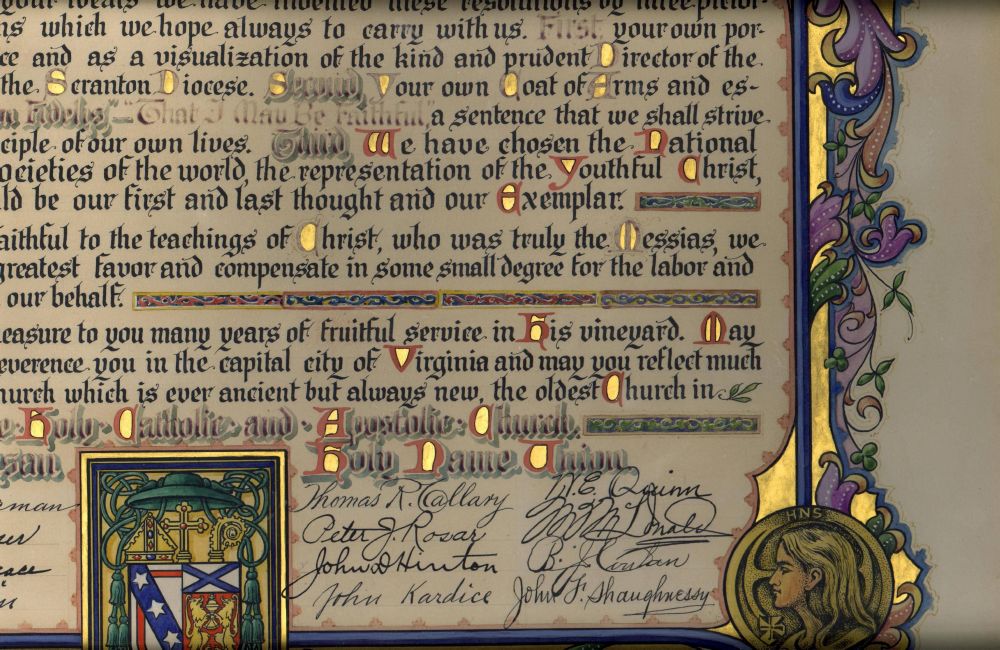 your ideals we have indented these resolutions by three pictor-
ns which we hope always to carry with us. First, your own por-
ce and as a visualization of the kind and prudent Director of the
the Scranton Diocese. Second, Your own Coat of Arms and es-
m Fidelis"—"That I May Be Faithful," a sentence that we shall strive
ciple of our own lives. Third, We have chosen the National
ocieties of the world, the representation of the Youthful Christ,
ld be our first and last thought and our Exemplar.
aithful to the teachings of Christ, who was truly the Messias, we
greatest favor and compensate in some small degree for the labor and
our behalf.
easure to you many years of fruitful service in His vineyard. May
everence you in the capital city of Virginia and may you reflect much
hurch which is ever ancient but always new, the oldest Church in
e Holy Catholic and Apostolic Church.
esan Holy Name Union
Thomas R. Callary W. E. Quinn
Peter J. Rosar
John D Hinton B. J.
John Kardice John F. Shaughnessy
HNS